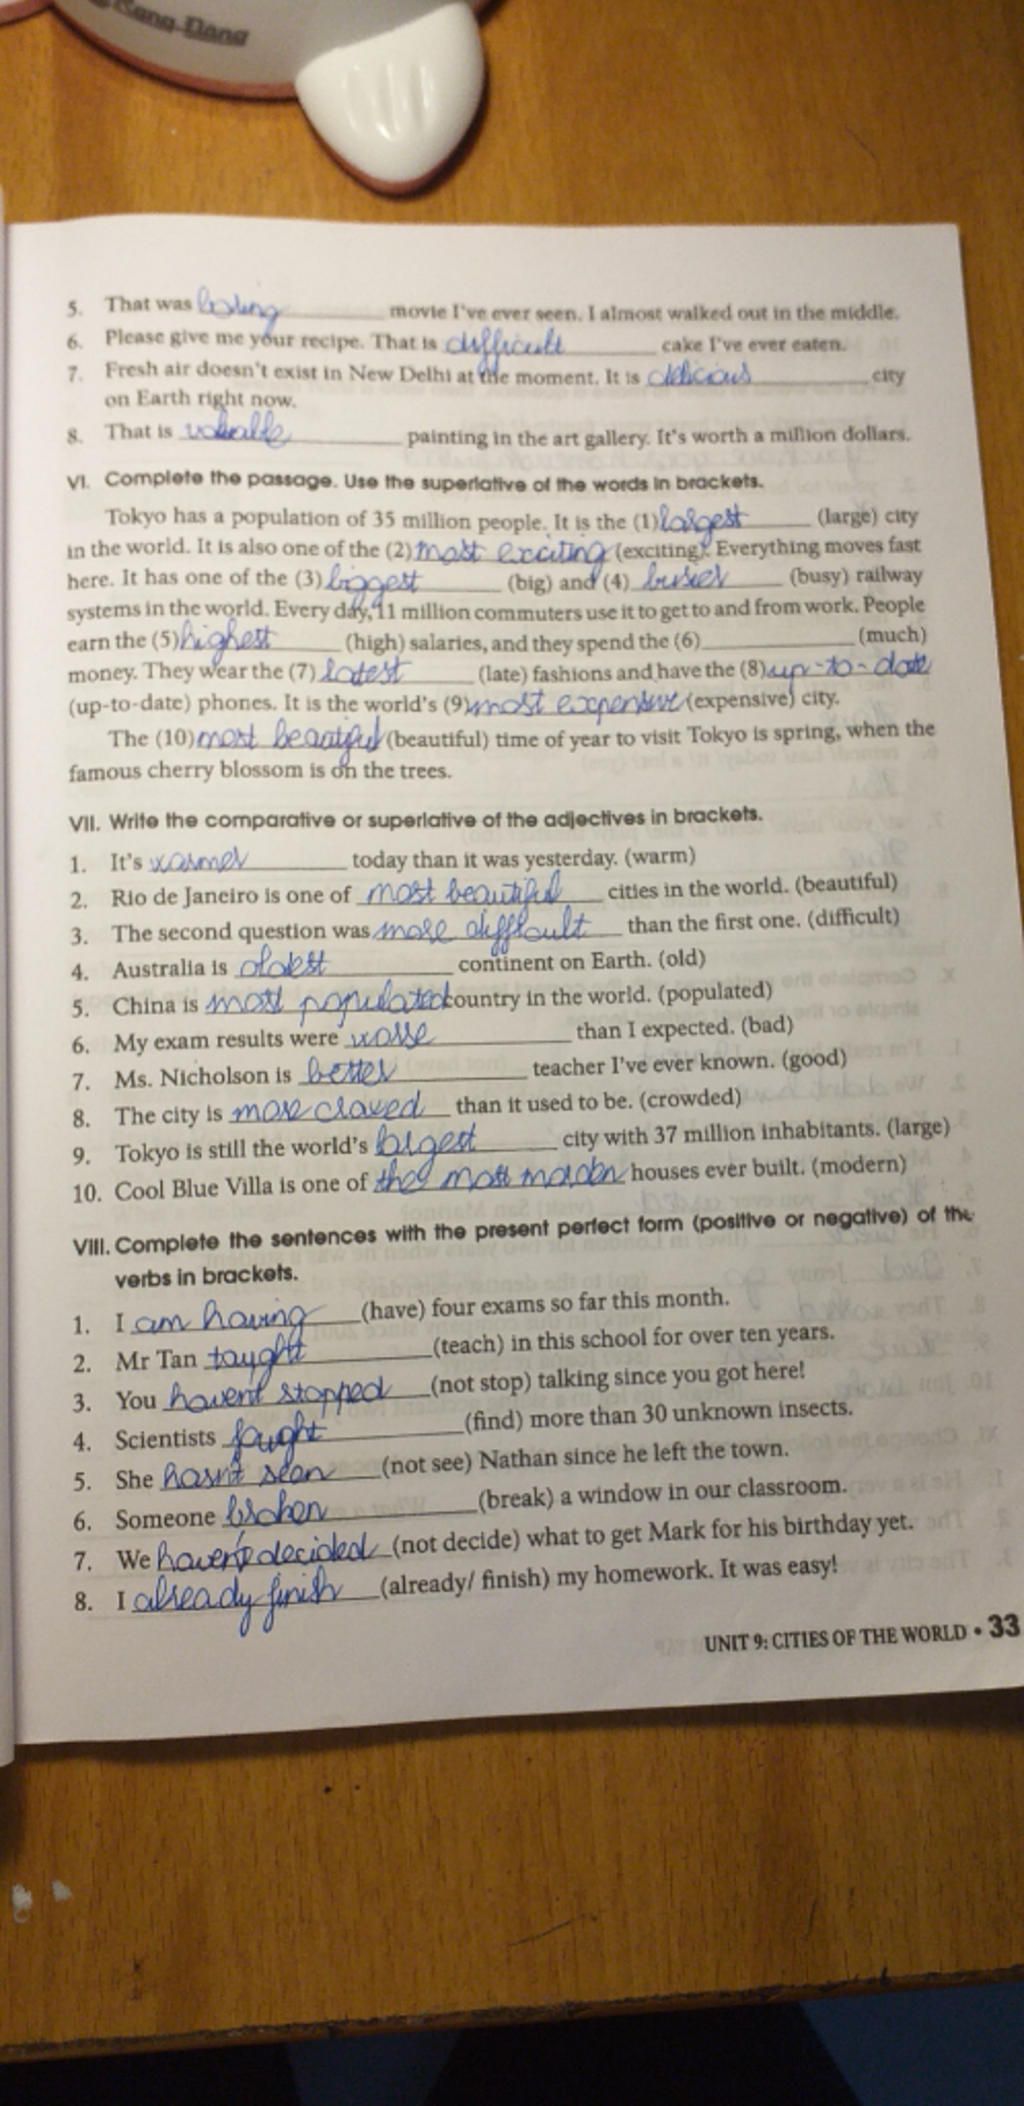 Cang-Dang
5. That was boring movie I've ever seen. I almost walked out in the middle.
6. Please give me your recipe. That is difficult cake I've ever eaten.
7. Fresh air doesn't exist in New Delhi at the moment. It is delicious city
on Earth right now.
8. That is valuable painting in the art gallery. It's worth a million dollars.
VI. Complete the passage. Use the superlative of the words in brackets.
Tokyo has a population of 35 million people. It is the (1) largest (large) city
in the world. It is also one of the (2) most exciting (exciting). Everything moves fast
here. It has one of the (3) biggest (big) and (4) busier (busy) railway
systems in the world. Every day, 11 million commuters use it to get to and from work. People
earn the (5) highest (high) salaries, and they spend the (6)__________ (much)
money. They wear the (7) latest (late) fashions and have the (8) up-to-date
(up-to-date) phones. It is the world's (9) most expensive (expensive) city.
The (10) most beautiful (beautiful) time of year to visit Tokyo is spring, when the
famous cherry blossom is on the trees.
VII. Write the comparative or superlative of the adjectives in brackets.
1. It's warmer today than it was yesterday. (warm)
2. Rio de Janeiro is one of most beautiful cities in the world. (beautiful)
3. The second question was more difficult than the first one. (difficult)
4. Australia is oldest continent on Earth. (old)
5. China is most populated country in the world. (populated)
6. My exam results were worse than I expected. (bad)
7. Ms. Nicholson is better teacher I've ever known. (good)
8. The city is more craved than it used to be. (crowded)
9. Tokyo is still the world's largest city with 37 million inhabitants. (large)
10. Cool Blue Villa is one of the most morden houses ever built. (modern)
VIII. Complete the sentences with the present perfect form (positive or negative) of the
verbs in brackets.
1. I am having (have) four exams so far this month.
2. Mr Tan taught (teach) in this school for over ten years.
3. You havent stopped (not stop) talking since you got here!
4. Scientists fought (find) more than 30 unknown insects.
5. She hasn't seen (not see) Nathan since he left the town.
6. Someone broken (break) a window in our classroom.
7. We haven't decided (not decide) what to get Mark for his birthday yet.
8. I already finish (already/ finish) my homework. It was easy!
UNIT 9: CITIES OF THE WORLD • 33